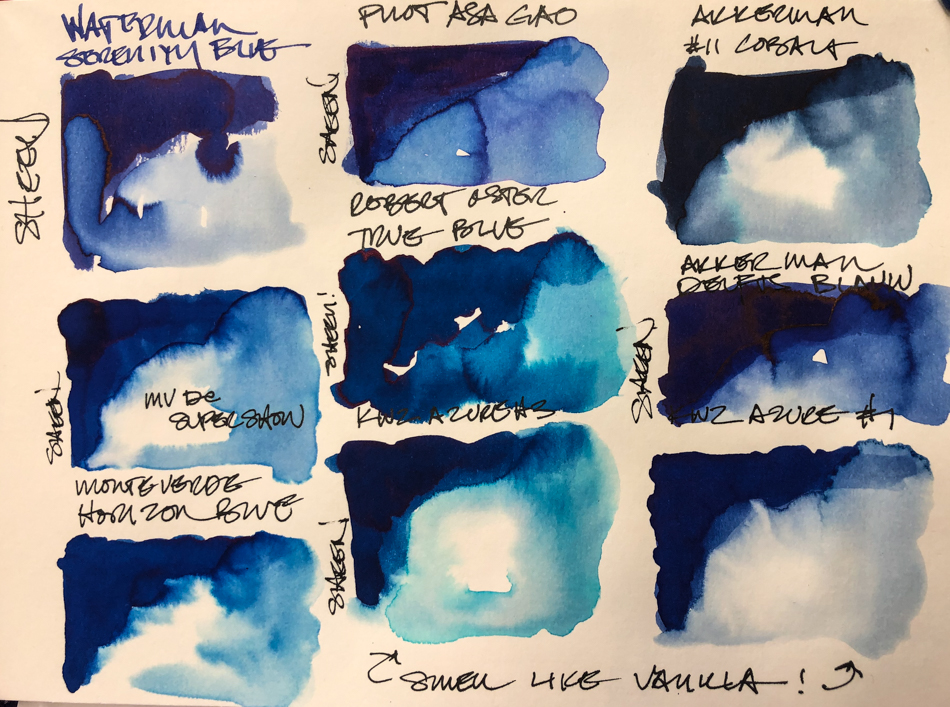 WATERMAN
SERENITY BLUE
SHEEN
PILOT ASA GAO
SHEEN
AKKERMAN
#11 COBALT
MV DC
SUPERSHOW
SHEEN
ROBERT OSTER
TRUE BLUE
SHEEN!
AKKERMAN
DELFTS BLAUW
SHEEN
MONTEVERDE
HORIZON BLUE
KWZ AZURE #3
SHEEN
KWZ AZURE #1
SMELL LIKE VANILLA!